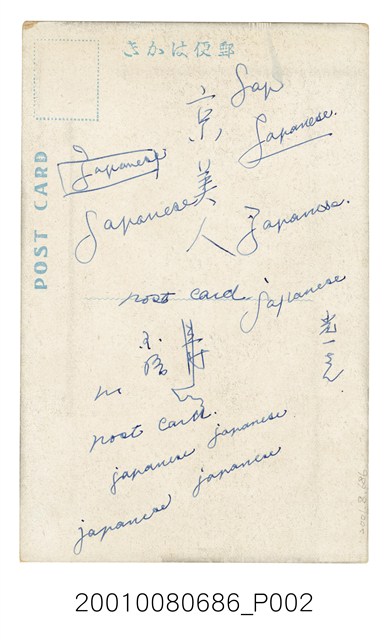 きかは便郵
POST CARD
Jap
Japanese.
Japanese
Japanese
京美人
Japanese.
Post Card.
Japanese
Post Card.
japanese japanese
japanese japanese
20010080686_P002